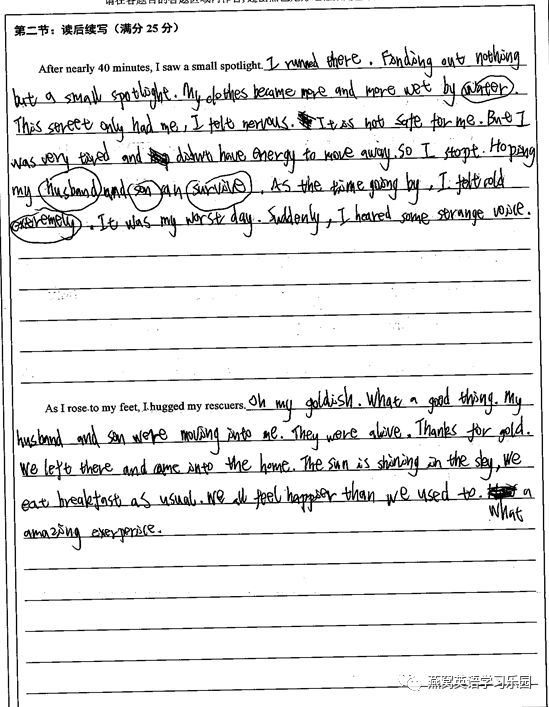 第二节：读后续写（满分 25 分）
After nearly 40 minutes, I saw a small spotlight. I runned there. Fonding out nothing
but a small spotlight. My clothes became more and more wet by water.
This street only had me, I felt nervous. It is not safe for me. But I
was very tired and didn't have energy to move away. So I stopt. Hoping
my husband and son can survive. As the time going by, I felt cold
exeremely. It was my worst day. Suddenly, I heared some strange voice.
As I rose to my feet, I hugged my rescuers. Oh my goldish. What a good thing. My
husband and son were moving into me. They were alive. Thanks for gold.
We left there and came into the home. The sun is shining in the sky, we
eat breakfast as usual. We all feel happier than we used to. What a
amazing exerperice.
燕窝英语学习乐园